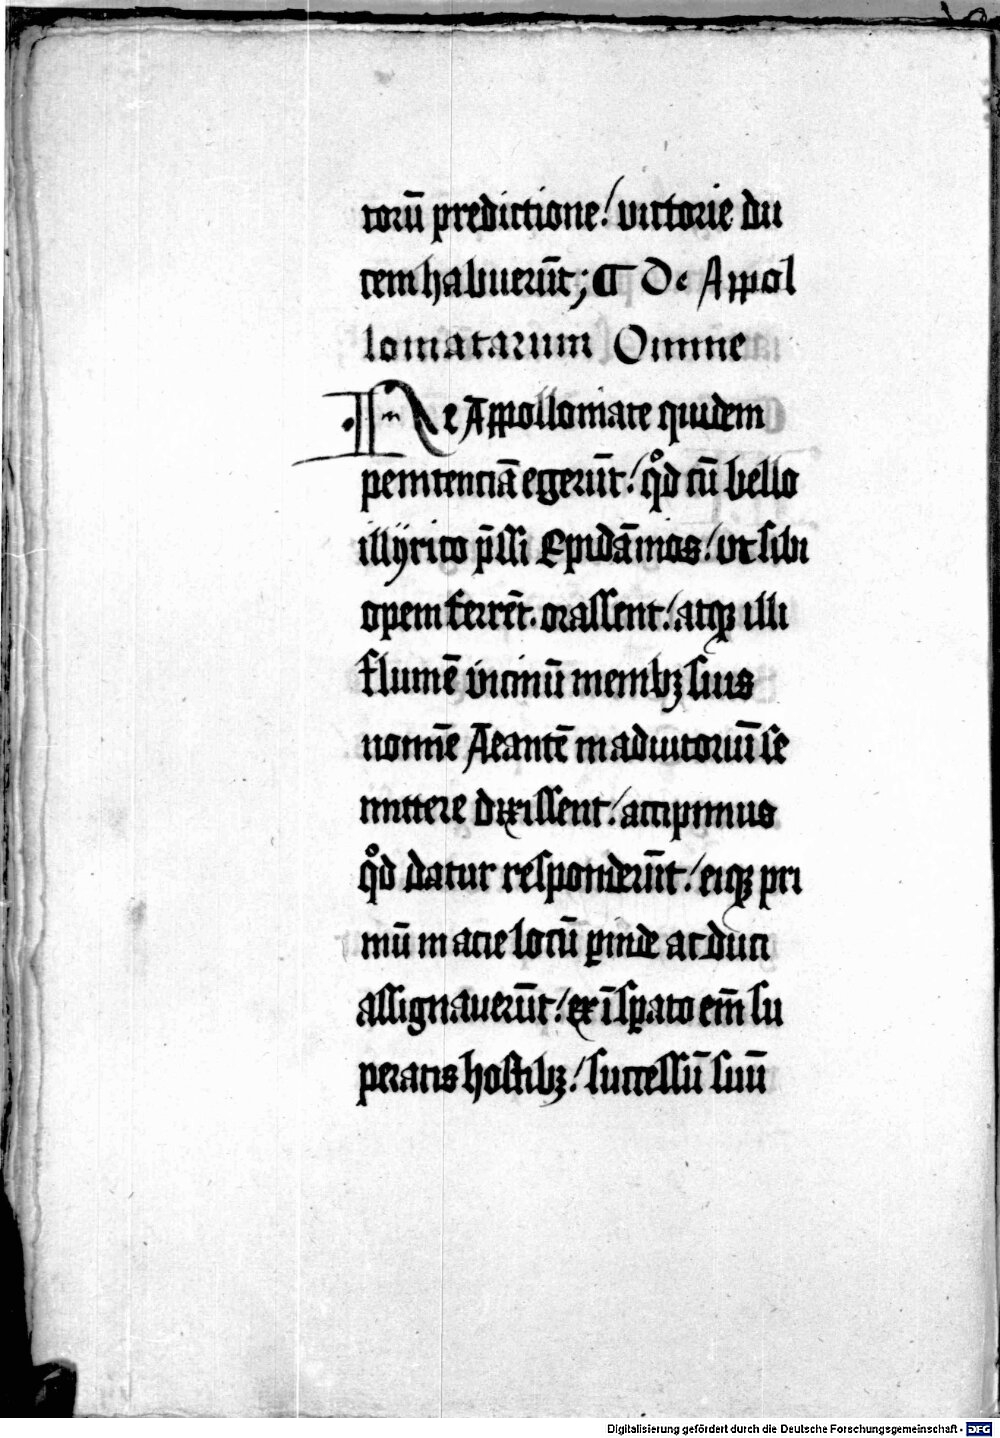 torū predictione / victorie du
cem habuerūt; ¶ De Appol
loniatarum Omine
Ne Appolloniate quidem
penitenciā egerūt / qͦd cū bello
illÿrico p̄ssi Epidānios / ut sibi
opem ferrēt. orassent / atqꝫ illi
flumē vicinū menibꝫ suis
nomīe Aeantē in adiutoriū se
mittere dixissent / accipimus
qͦd datur responderūt / eiqꝫ pri
mū in acie locū ꝑinde ac duci
assignauerūt / ex īsꝑato em̄ su
peratis hostibꝫ / successū suū
Digitalisierung gefördert durch die Deutsche Forschungsgemeinschaft - DFG